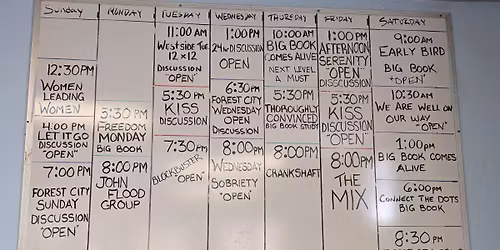 Sunday
12:30PM
WOMEN
LEADING
WOMEN
4:00 PM
LET IT GO
DISCUSSION
"OPEN"
7:00 PM
FOREST CITY
SUNDAY
DISCUSSION
"OPEN"
MONDAY
5:30 PM
FREEDOM
MONDAY
BIG BOOK
8:00 PM
JOHN
FLOOD
GROUP
TUESDAY
11:00 AM
Westside Tue.
12 x 12
DISCUSSION
"OPEN"
5:30 PM
KISS
DISCUSSION
7:30 PM
BLOCKBUSTER
"OPEN"
WEDNESDAY
1:00 PM
24hr DISCUSSION
OPEN
6:30 PM
FOREST CITY
WEDNESDAY
OPEN
DISCUSSION
8:00 PM
WEDNESDAY
SOBRIETY
"OPEN"
THURSDAY
10:00 AM
BIG BOOK
COMES ALIVE
NEXT LEVEL
A MUST
5:30 PM
THOROUGHLY
CONVINCED
BIG BOOK STUDY
8:00 PM
CRANKSHAFT
FRIDAY
1:00 PM
AFTERNOON
SERENITY
"OPEN"
DISCUSSION
5:30 PM
KISS
DISCUSSION
"OPEN"
8:00 PM
THE
MIX
SATURDAY
9:00 AM
EARLY BIRD
BIG BOOK
"OPEN"
10:30 AM
WE ARE WELL ON
OUR WAY
"OPEN"
1:00 PM
BIG BOOK COMES
ALIVE
6:00 PM
CONNECT THE DOTS
BIG BOOK
8:30 PM